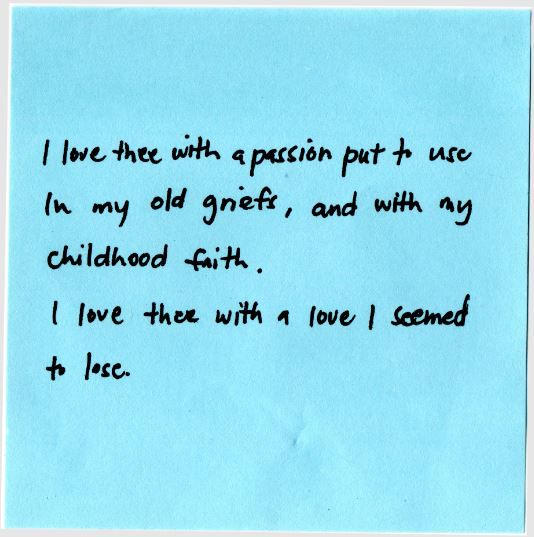 I love thee with a passion put to use
In my old griefs, and with my
childhood faith.
I love thee with a love I seemed
to lose.